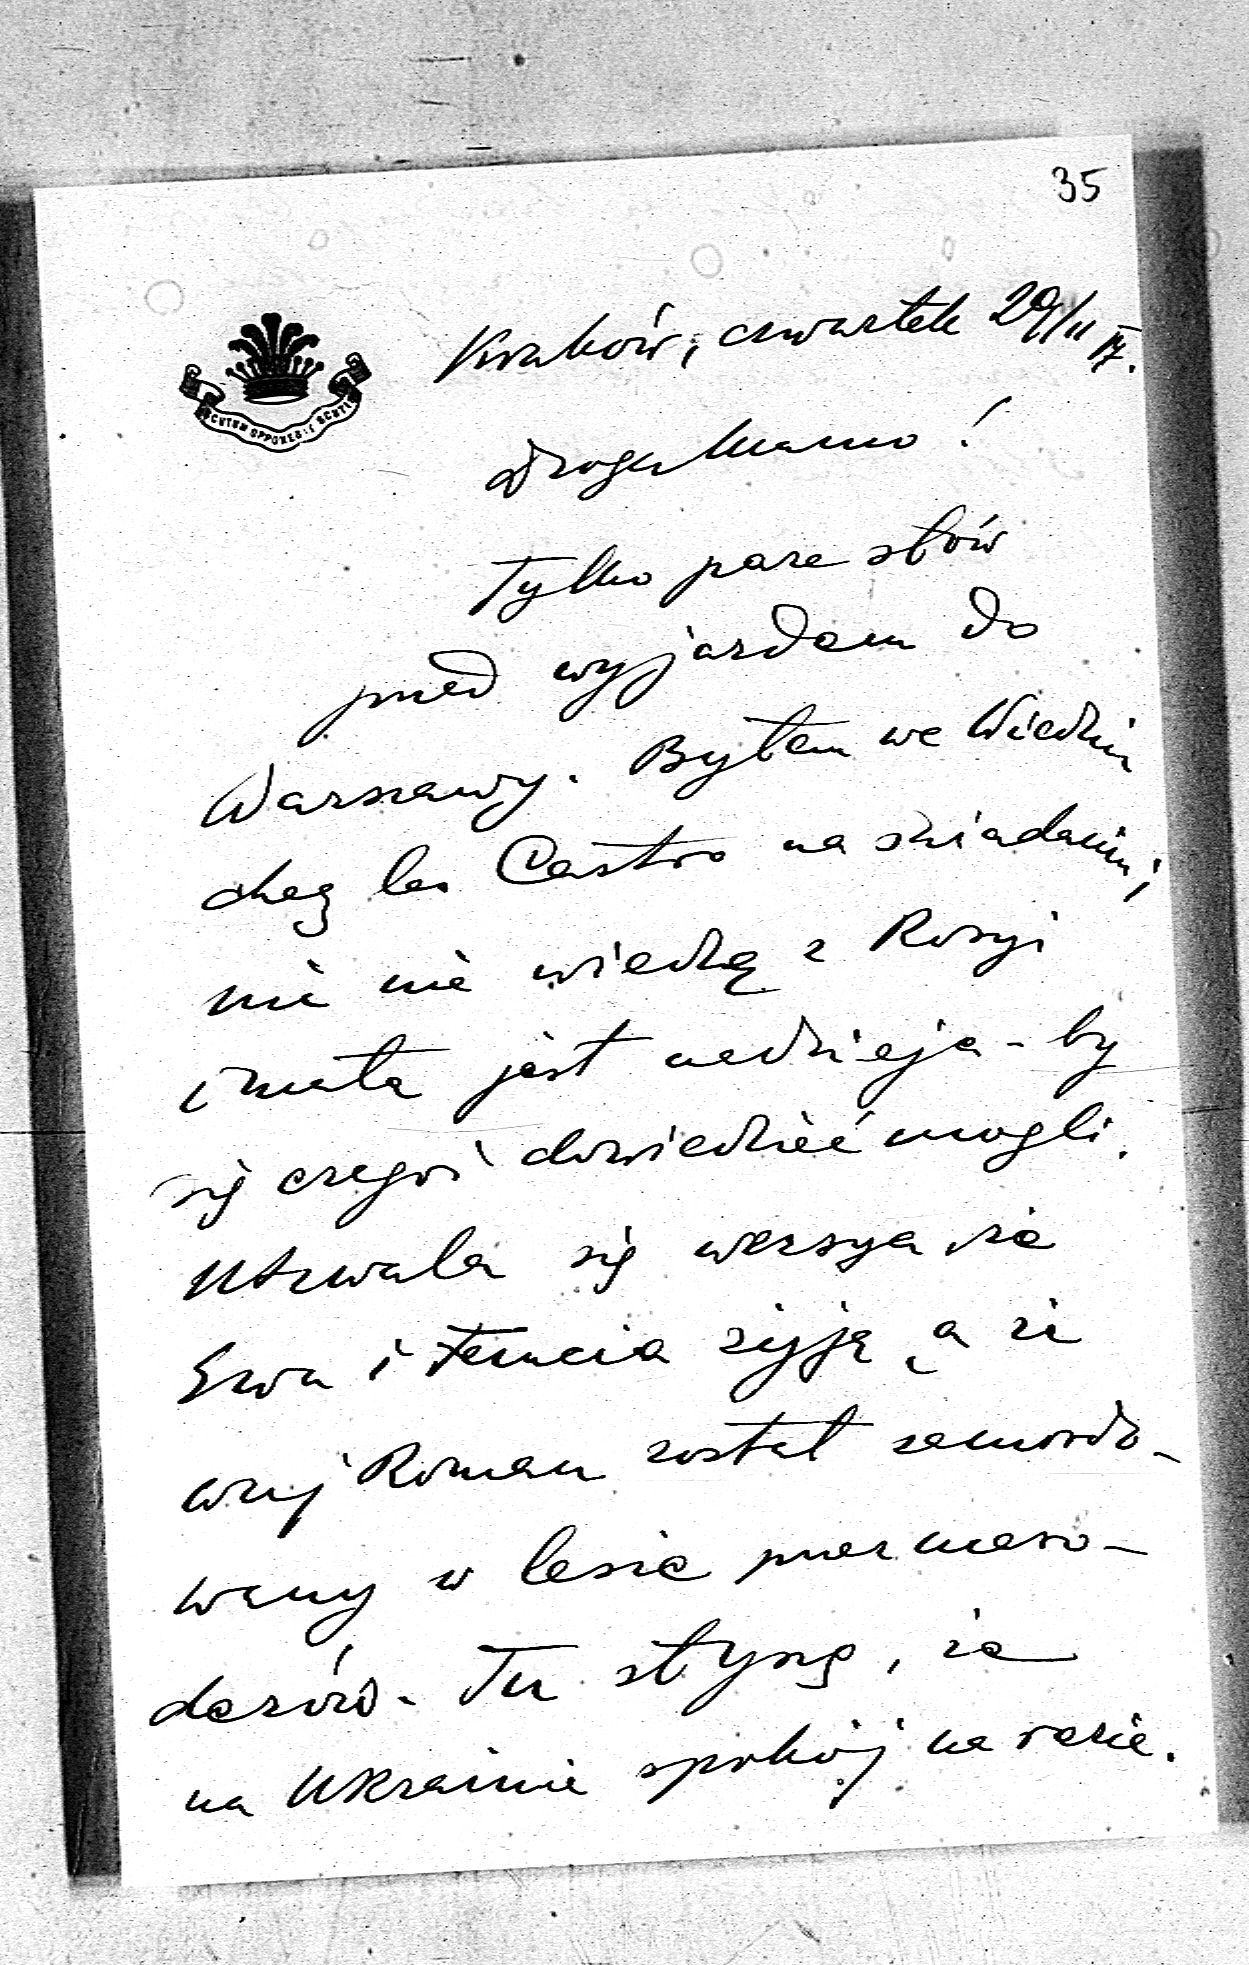 35
SCUTUM OPPONEBAT SCUTIS
Kraków, czwartek 29/11 17.
Droga Mamo!
Tylko parę słów
przed wyjazdem do
Warszawy. Byłem we Wiedniu
chez les Castro na śniadaniu;
nic nie wiedzą z Rosyi
i mała jest nadzieja – by
się czegoś dowiedzieć mogli.
Utrwala się wersya że
Ewa i Temcia żyją, a że
wuj Roman został zamordo-
wany w lesie przez maro-
derów. Tu słyszę, że
na Ukrainie spokój na razie.